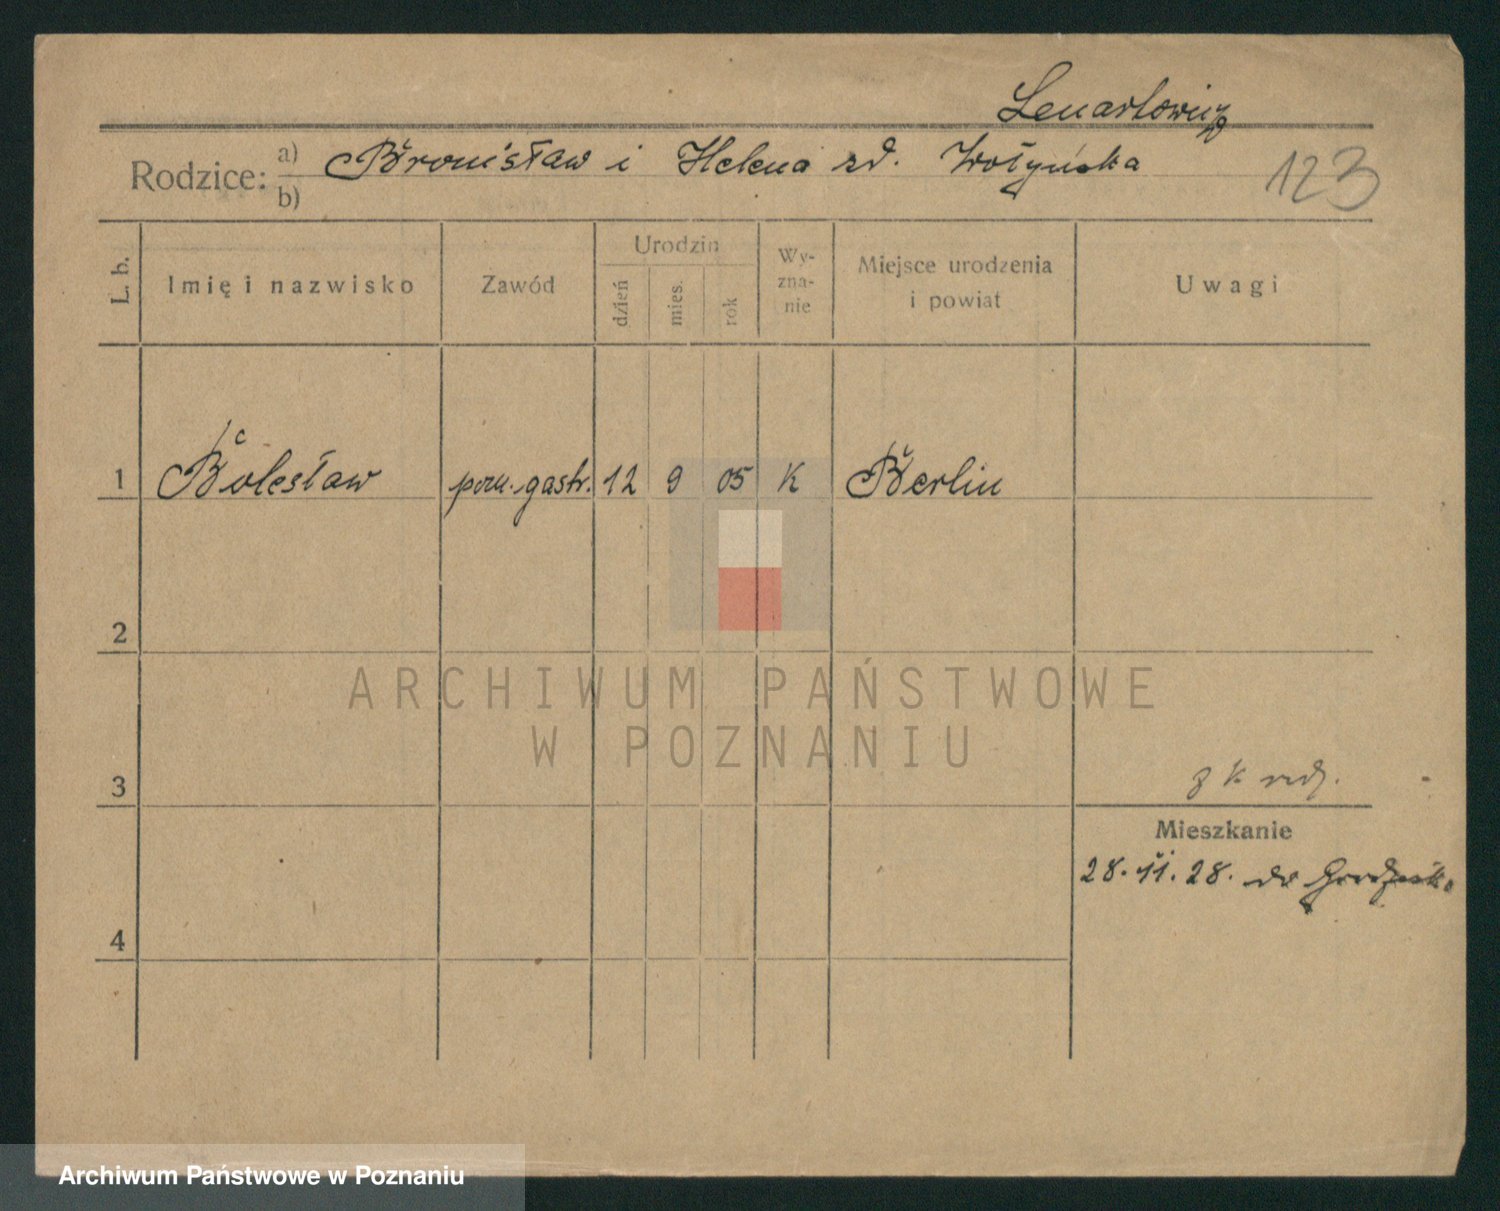 Lenartowicz
Rodzice: a) Bronisław i Helena zd. Wołyńska
b)
123
L. b. Imię i nazwisko Zawód Urodzin dzień mies. rok Wy-zna-nie Miejsce urodzenia i powiat Uwagi
1 Bolesław pom. gastr. 12 9 05 K Berlin
2
ARCHIWUM PAŃSTWOWE
W POZNANIU
3
Mieszkanie
28.11.28. do
4
Archiwum Państwowe w Poznaniu